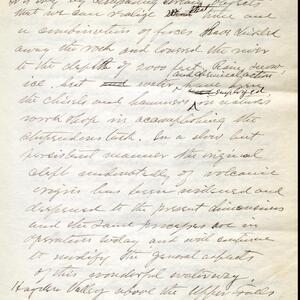 that we can realize that time and
a combination of forces have chiseled
away the rock and lowered the river
to the depth of 2000 feet. Rain, snow,
and chemical action
ice, heat water have been employed,
the chisels and hammers in natures
work shop in accomplishing the
stupendous task. In a slow but
persistent manner the original
cleft undoubtedly of volcanic
origin has been widened and
deepened to the present dimensions
and the same processes are in
operation today and will continue
to modify the general aspects
of this wonderful waterway.
Hayden Valley above the Upper Falls